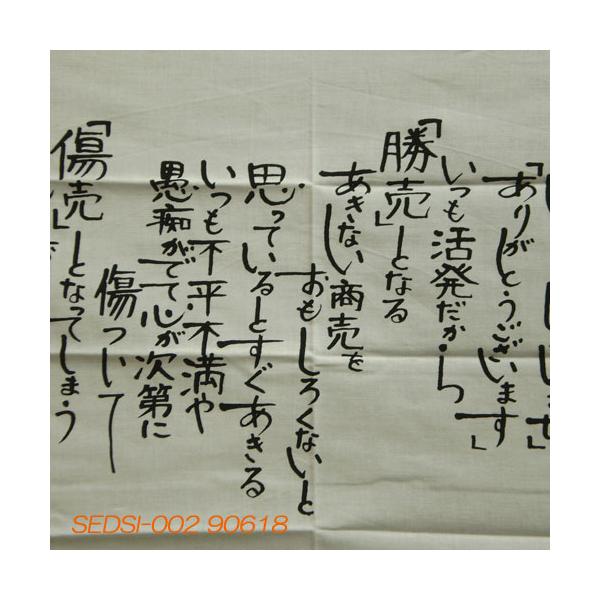 「ありがとうございます」
いつも活発だから
「勝売」となる
あきない商売を
おもしろくないと
思っているとすぐあきる
いつも不平不満や
愚痴がでて心が次第に
傷ついて
「傷売」となってしまう
SEDSI-002 90618